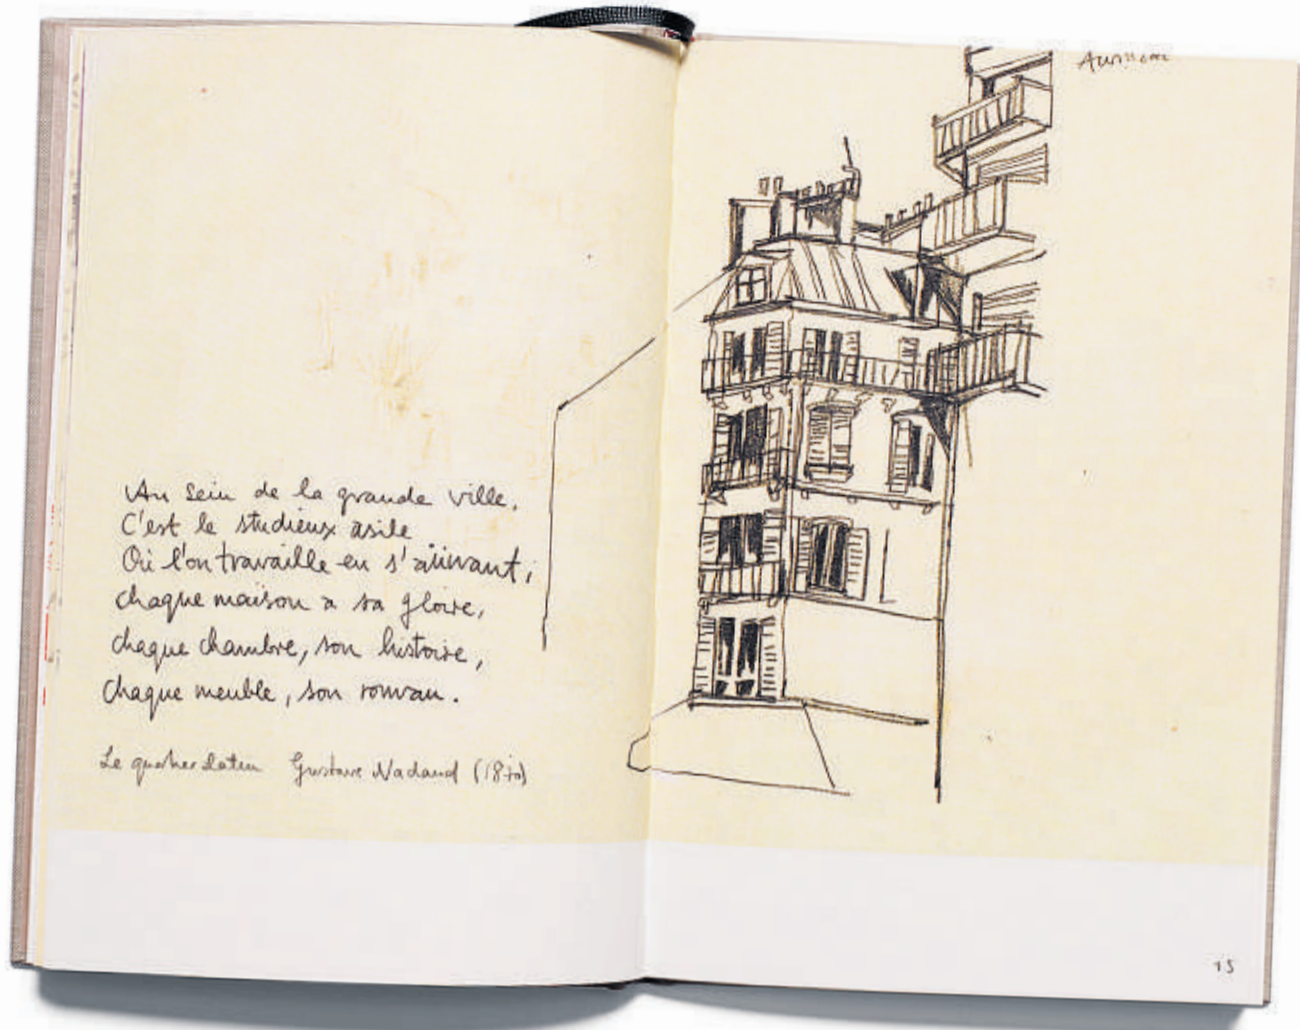 Au sein de la grande ville,
C'est le studieux asile
Où l'on travaille en s'aimant;
chaque maison a sa gloire,
chaque chambre, son histoire,
chaque meuble, son roman.
Le quartier latin Gustave Nadaud
15